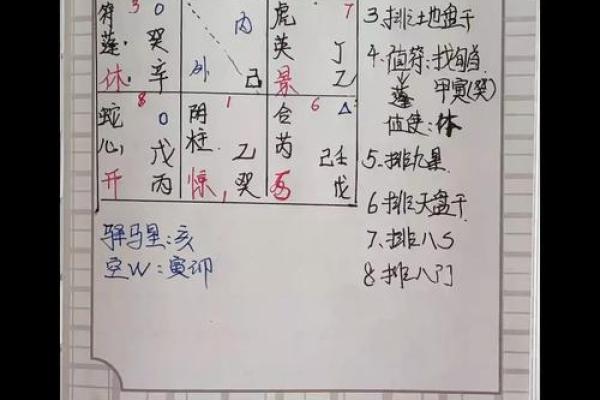 符 3 0 内 虎 7
蓬 癸 英 丁
休 辛 外 己 景 乙
蛇 8 0 阴 1 合 6 △
心 戊 柱 乙 芮 己壬
开 丙 惊 癸 死 戊
驿马星:亥
空W:寅卯
3.排地盘干
4.值符:找旬首
蓬 甲寅(癸)
值使:休
5.排九星
6排天盘干
7、排八S
8排八门